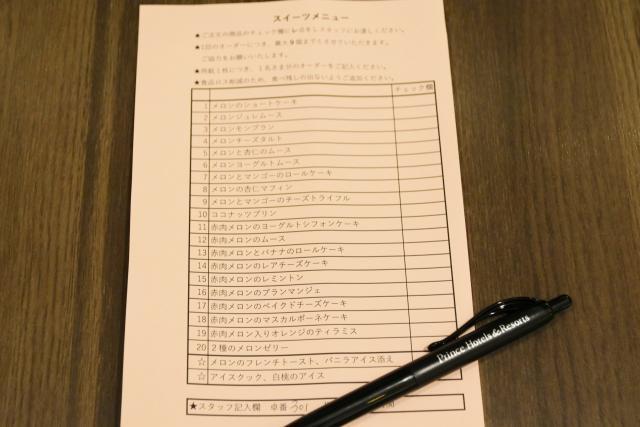 スイーツメニュー
★ご注文の商品のチェック欄に✓点をしスタッフにお渡しください。
★1回のオーダーにつき、最大9個までとさせていただきます。
ご協力をお願いいたします。
★用紙1枚につき、1名さま分のオーダーをご記入ください。
★食品ロス削減のため、食べ残しの出ないようご追加ください。
チェック欄
1 メロンのショートケーキ
2 メロンジュレムース
3 メロンモンブラン
4 メロンチーズタルト
5 メロンと杏仁のムース
6 メロンヨーグルトムース
7 メロンとマンゴーのロールケーキ
8 メロンの杏仁マフィン
9 メロンとマンゴーのチーズトライフル
10 ココナッツプリン
11 赤肉メロンのヨーグルトシフォンケーキ
12 赤肉メロンのムース
13 赤肉メロンとバナナのロールケーキ
14 赤肉メロンのレアチーズケーキ
15 赤肉メロンのレミントン
16 赤肉メロンのブランマンジェ
17 赤肉メロンのベイクドチーズケーキ
18 赤肉メロンのマスカルポーネケーキ
19 赤肉メロン入りオレンジのティラミス
20 2種のメロンゼリー
☆ メロンのフレンチトースト、バニラアイス添え
☆ アイスクック、白桃のアイス
★スタッフ記入欄 卓番 301
Prince Hotels & Resorts